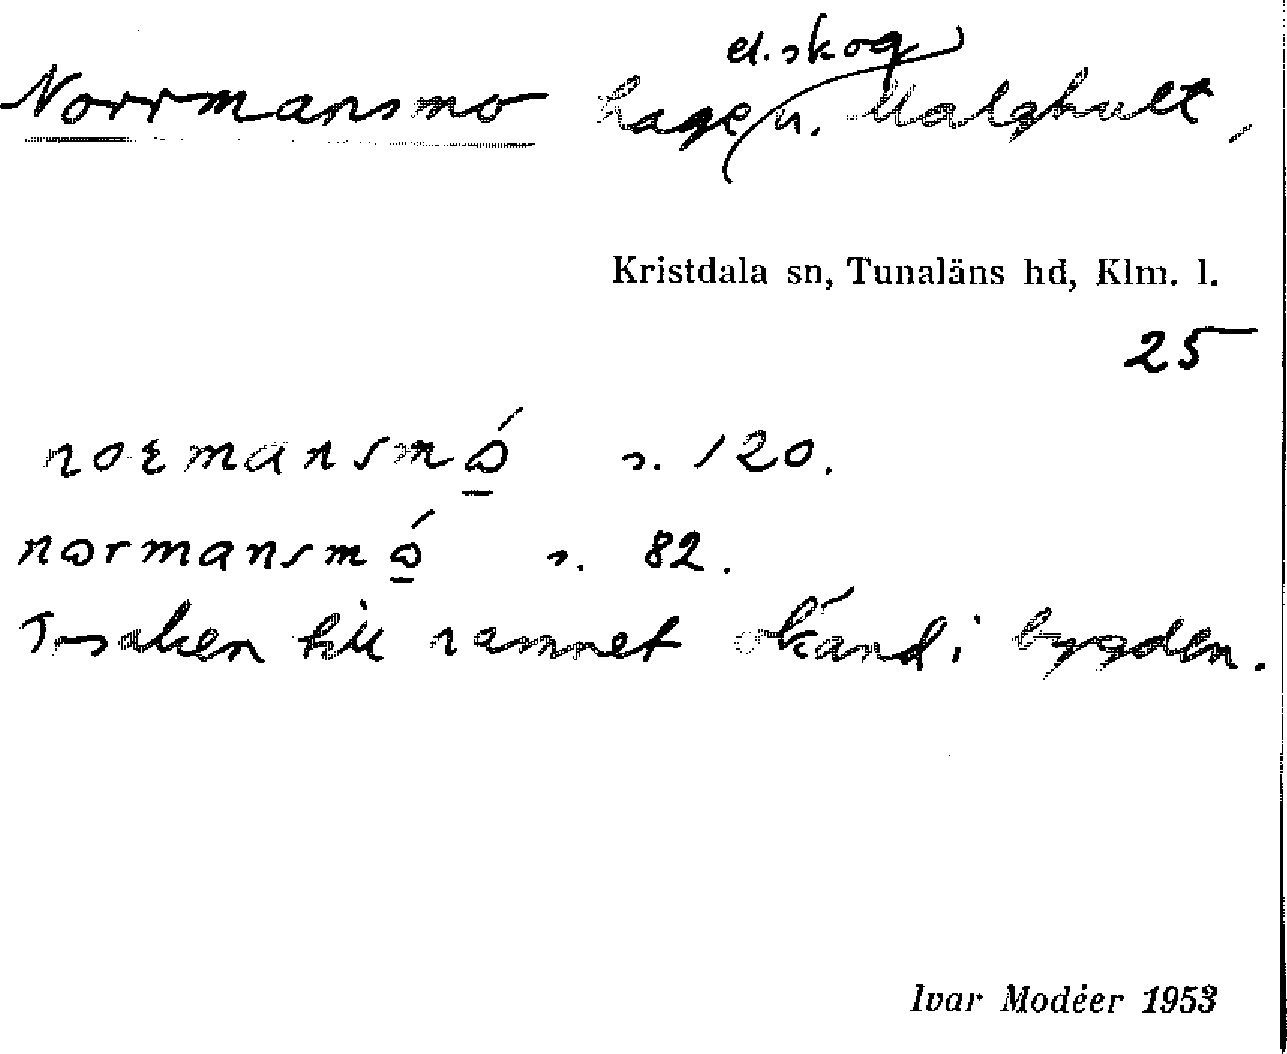 el. skog
Norrmansmo hage u. Malghult,
Kristdala sn, Tunaläns hd, Klm. l.
25
normansmǻ s. 120.
normansmǻ s. 82.
Orsaken till namnet okänd i bygden.
Ivar Modéer 1953